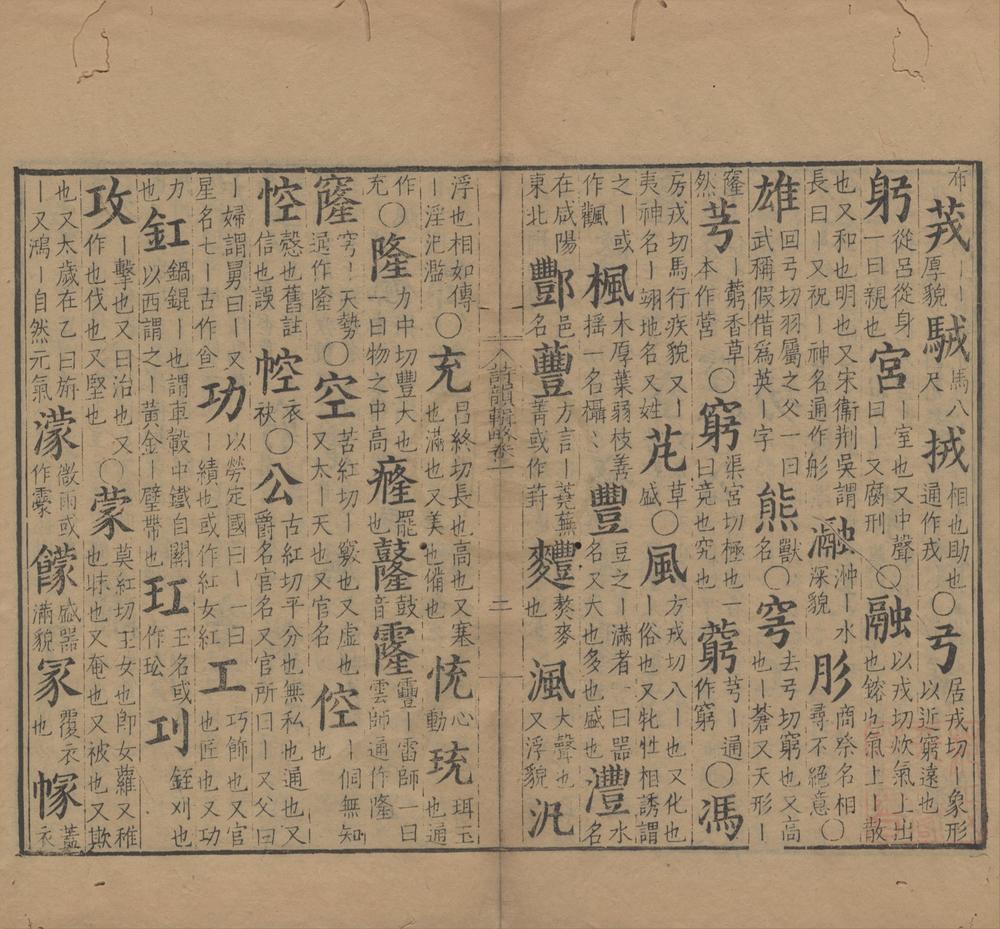 布茙｜｜厚貌駥馬八尺㧡相也助也通作戎○弓居戎切｜象形以近窮遠也
躬從呂從身一曰親也宮｜室也又中聲曰｜又腐刑○融以戎切炊氣上出也鎔也氣上｜散
也又和也明也又宋衞荆吳謂長曰｜又祝｜神名通作肜瀜沖｜水深貌肜商祭名相尋不絕意○
雄回弓切羽屬之父一曰武稱假借爲英｜字熊獸名○穹去弓切窮也又高也｜蒼又天形｜
窿然芎｜藭香草本作营○窮渠宮切極也一曰竟也究也藭芎｜通作窮○馮
房戎切馬行疾貌又｜夷神名｜翊地名又姓芃草盛○風方戎切八｜也又化也｜俗也又牝牡相誘謂
之｜或作飌楓木厚葉弱枝善搖一名欇豐豆之｜滿者一曰器名又大也多也盛也灃水名
在咸陽東北酆邑名蘴方言｜蕘蕪菁或作葑麷熬麥也渢大聲也又浮貌汎
詩韻輯略卷一
二
浮也相如傳｜淫汜濫○充昌終切長也高也又塞也滿也又美也備也㤝心動珫珥玉也通
作充○隆力中切豐大也一曰物之中高癃罷也鼓音霳豐｜雷師一曰雲師通作隆
窿穹｜天勢通作隆○空苦紅切｜竅也又虛也又太｜天也又官名倥｜侗無知也
悾愨也舊註信也誤衣袂○公古紅切平分也無私也通也又爵名官名又官所曰｜又父曰
｜婦謂舅曰｜又星名七｜古作㕣功以勞定國曰｜一曰｜績也或作紅女紅工巧飾也又官也匠也又功
力也釭鍋錕｜也謂車轂中鐵自關以西謂之｜黃金｜璧帶也玒玉名或作玜㓚銍刈也
攻｜擊也又曰治也又作也伐也又堅也○蒙莫紅切王女也卽女蘿又稚也昧也又奄也又被也又欺
也又太歲在乙曰旃｜又鴻｜自然元氣濛微雨或作霥饛盛器滿貌冡覆衣也幏蓋衣